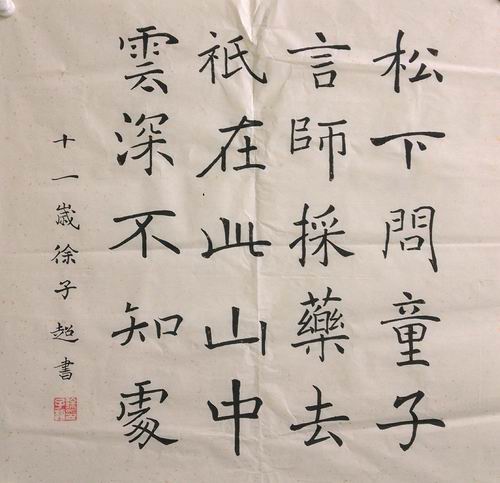 松下問童子
言師採藥去
祇在此山中
雲深不知處
十一歲徐子超書